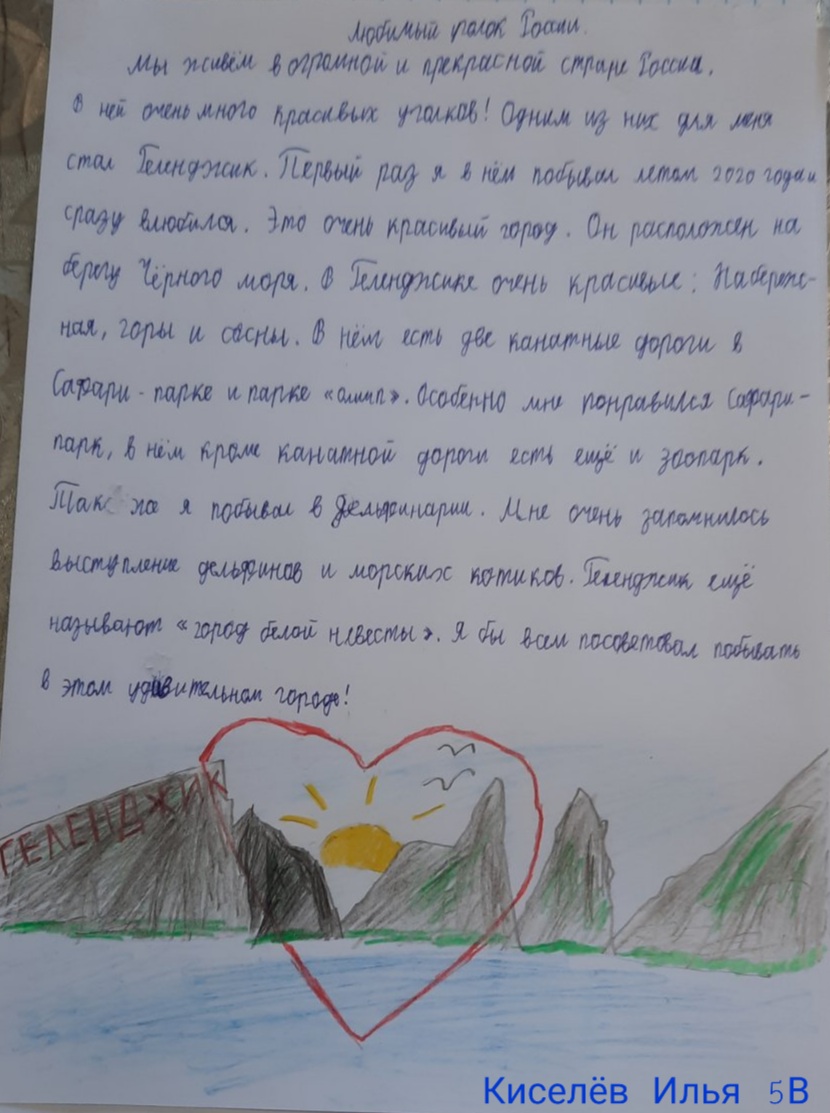 Любимый уголок России.
Мы живём в огромной и прекрасной стране Россия.
В ней очень много красивых уголков! Одним из них для меня
стал Геленджик. Первый раз я в нём побывал летом 2020 года и
сразу влюбился. Это очень красивый город. Он расположен на
берегу Чёрного моря. В Геленджике очень красивые: Набереж-
ная, горы и сосны. В нём есть две канатные дороги в
Сафари-парке и парке «олимп». Особенно мне понравился Сафари-
парк, в нём кроме канатной дороги есть ещё и зоопарк.
Так же я побывал в Дельфинарии. Мне очень запомнилось
выступление дельфинов и морских котиков. Геленджик ещё
называют «город белой невесты». Я бы всем посоветовал побывать
в этом удивительном городе!
ГЕЛЕНДЖИК
Киселёв Илья 5В